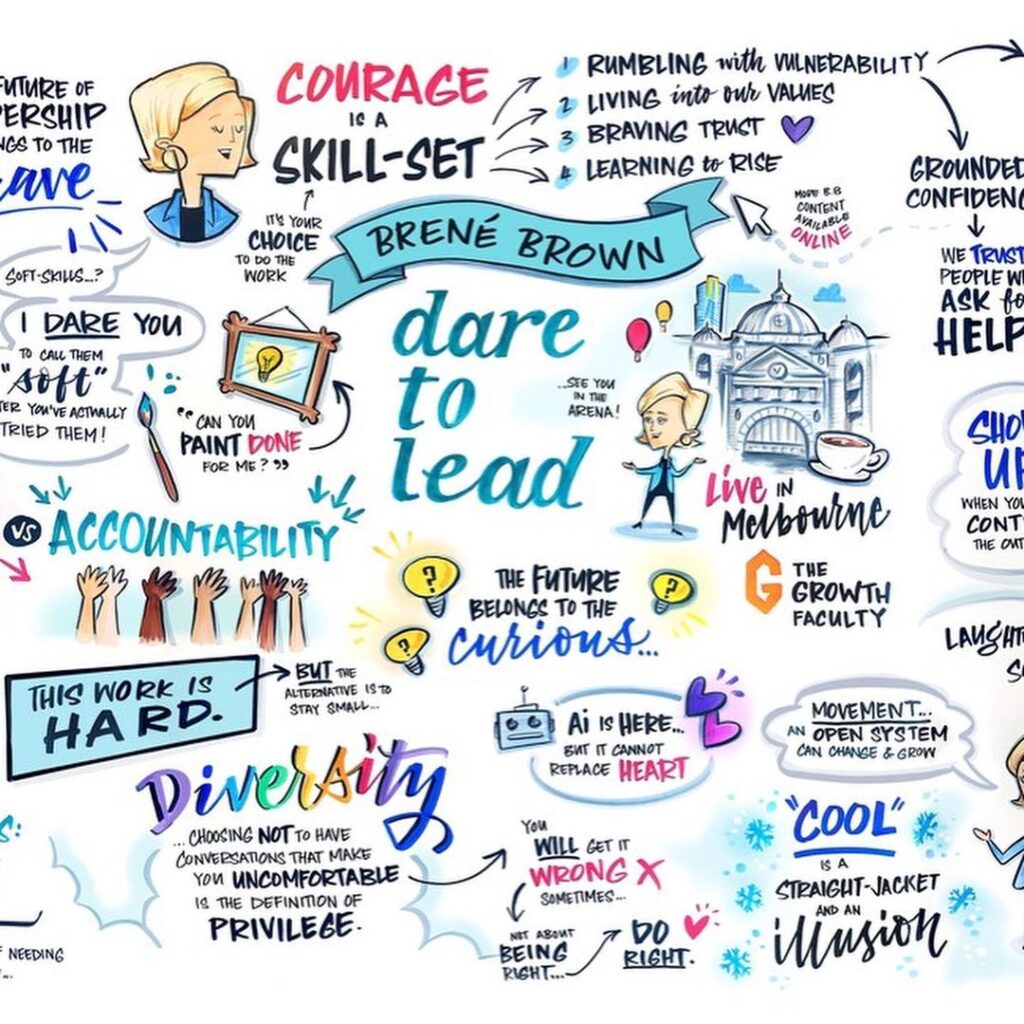 FUTURE OF
TO THE
COURAGE
IS A
SKILL-SET
IT'S YOUR
CHOICE
TO DO THE
WORK
1 RUMBLING with VULNERABILITY
2 LIVING into our VALUES
3 BRAVING TRUST
4 LEARNING to RISE
MORE B.B
CONTENT
AVAILABLE
ONLINE
GROUNDED
WE TRUST
PEOPLE
ASK
HELP
BRENÉ BROWN
dare
to
lead
SOFT-SKILLS..?
I DARE YOU
TO CALL THEM
"soft"
YOU'VE ACTUALLY
TRIED THEM!
"CAN YOU
PAINT DONE
FOR ME?"
...SEE YOU
IN THE
ARENA!
Live IN
Melbourne
G THE
GROWTH
FACULTY
UP
WHEN
THE
VS ACCOUNTABILITY
THE FUTURE
BELONGS TO THE
curious...
THIS WORK IS
HARD.
BUT THE
ALTERNATIVE IS TO
STAY SMALL...
Ai IS HERE...
BUT IT CANNOT
REPLACE HEART
MOVEMENT...
AN OPEN SYSTEM
CAN CHANGE & GROW
Diversity
...CHOOSING NOT TO HAVE
CONVERSATIONS THAT MAKE
YOU UNCOMFORTABLE
IS THE DEFINITION OF
PRIVILEGE.
YOU
WILL GET IT
WRONG X
SOMETIMES...
NOT ABOUT
BEING
RIGHT...
DO
RIGHT.
"COOL"
IS A
STRAIGHT-JACKET
AND AN
illusion
NEEDING